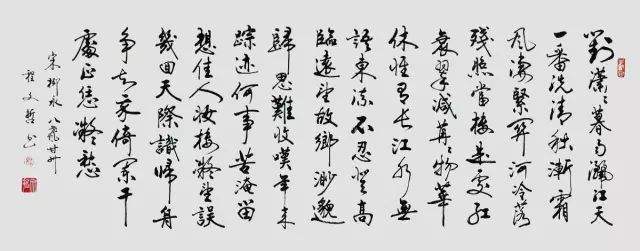 對瀟瀟暮雨灑江天
一番洗清秋漸霜
風凄緊關河冷落
殘照當樓是處紅
衰翠減苒苒物華
休惟有長江水無
語東流不忍登高
臨遠望故鄉渺邈
歸思難收嘆年來
踪迹何事苦淹留
想佳人妝樓凝望誤
幾回天際識歸舟
爭知我倚闌干
處正恁凝愁
宋柳永八聲甘州
程文